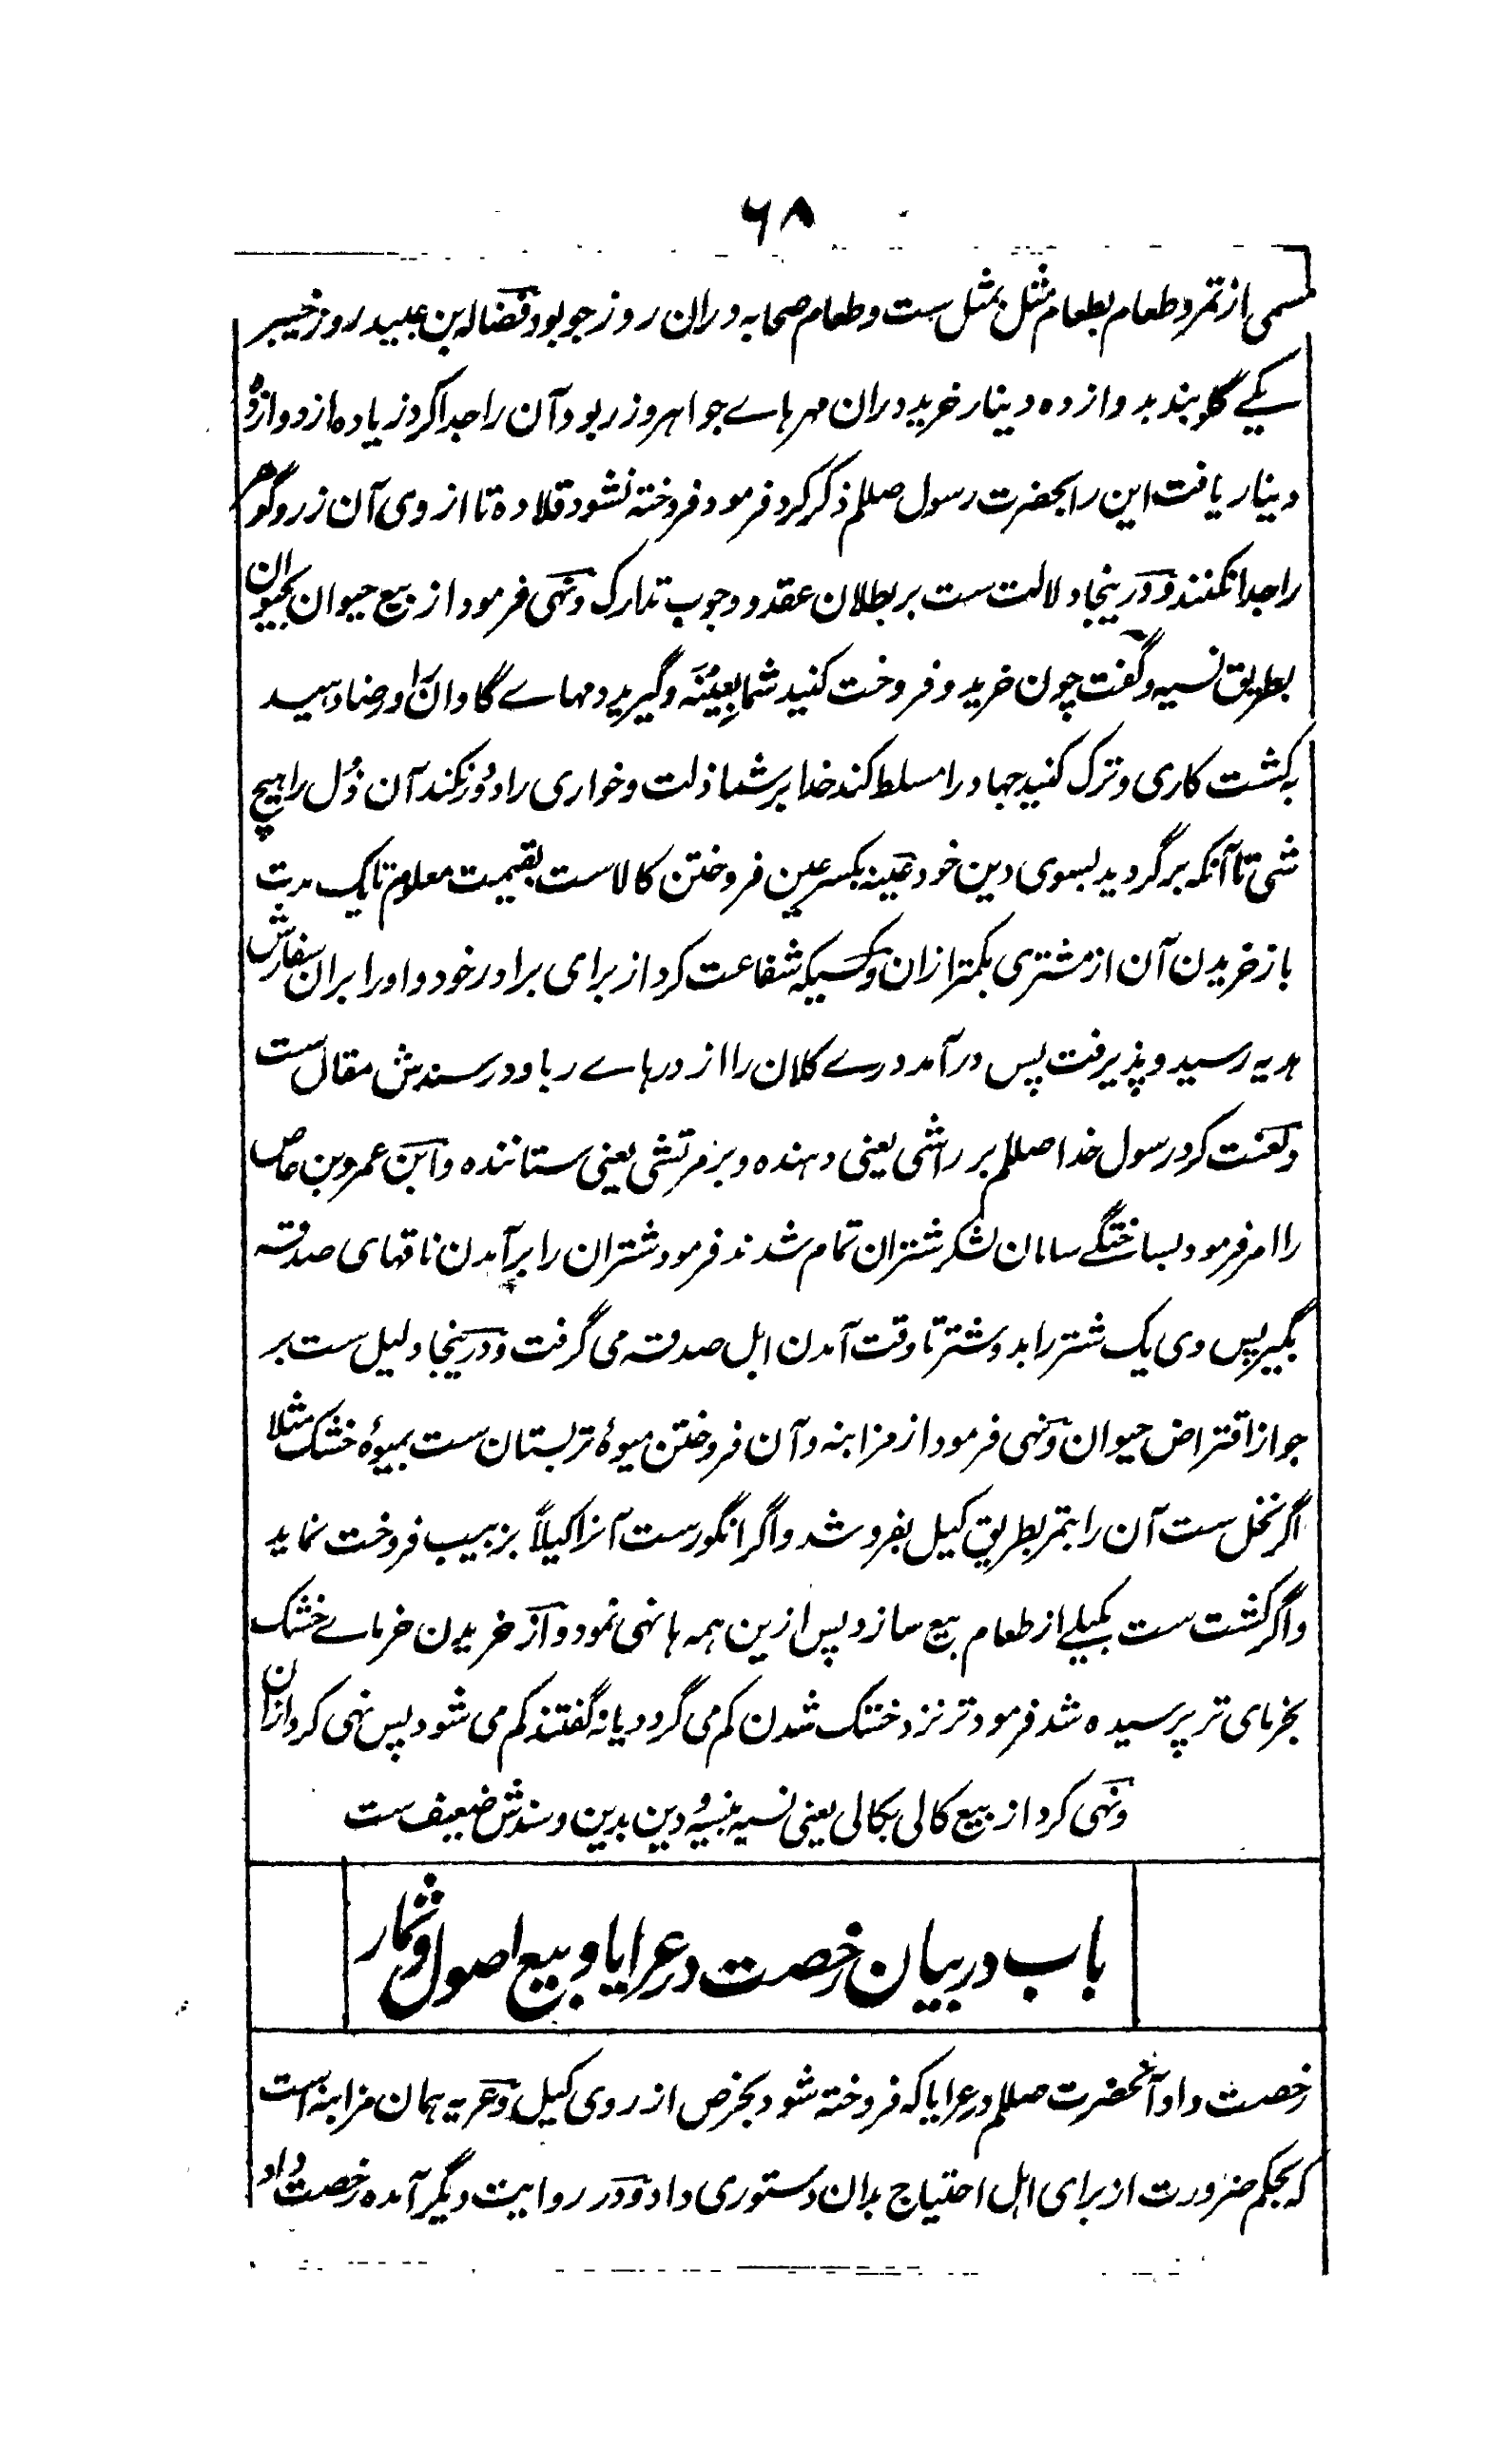 ۶۸
مسمی از تمر و طعام بطعام مثل بمثل ست و طعام صحابه دران روز جو بود فضاله بن عبید روز خیبر
یکے گلوبند بدوازده دینار خرید دران مهرهاے جواهر و زر بود آن را جدا کرد زیاده از دوازده
دینار یافت این را بحضرت رسول صلعم ذکر کرد فرمود فروخته نشود قلاده تا از وی آن زر و گوهر
را جدا نکنند و درینجا دلالت ست بر بطلان عقد و وجوب تدارک و نهی فرمود از بیع حیوان بحیوان
بطریق نسیه و گفت چون خرید و فروخت کنید شما بعِینَه و گیرید دمهاے گاوان را و رضا دهید
بکشت کاری و ترک کنید جهاد را مسلط کند خدا بر شما ذلت و خواری را دُور نکند آن ذُل را هیچ
شی تا آنکه برگردید بسوی دین خود عینه بکسر عین فروختن کالاست بقیمت معلوم تا یک مدت
باز خریدن آن از مشتری بکمتر ازان و کسیکه شفاعت کرد از برای برادر خود و او را بران سفارش
هدیه رسید و پذیرفت پس درآمد درے کلان را از درهاے ربا و در سندش مقال ست
و لعنت کرد رسول خدا صلعم بر راشی یعنی دهنده و بر مرتشی یعنی ستاننده و ابن عمرو بن عاص
را امر فرمود بساختگے سامان لشکر شتران تمام شدند فرمود شتران را برآمدن ناقهای صدقه
بگیر پس وی یک شتر را بدو شتر تا وقت آمدن ابل صدقه می گرفت و درینجا دلیل ست بر
جواز اقتراض حیوان و نهی فرمود از مزابنه و آن فروختن میوهٔ تر بستان ست بمیوهٔ خشک مثلا
اگر نخل ست آن را بتمر بطریق کیل بفروشد و اگر انگور ست آنرا کیلاً بزبیب فروخت نماید
و اگر کشت ست بکیلے از طعام بیع سازد پس ازین همه ها نهی نمود و از خریدن خرماے خشک
بخرمای تر پرسیده شد فرمود تر نزد خشک شدن کم می گردد یا نه گفتند کم می شود پس نهی کرد ازان
و نهی کرد از بیع کالی بکالی یعنی نسیه بنسیه و دین بدین و سندش ضعیف ست
باب در بیان رخصت در عرایا و بیع اصول و ثمار
رخصت داد آنحضرت صلعم در عرایا که فروخته شود بخرص از روی کیل و عریه همان مزابنه است
که بحکم ضرورت از برای اهل احتیاج بدان دستوری داد و در روایت دیگر آمده رخصت داد